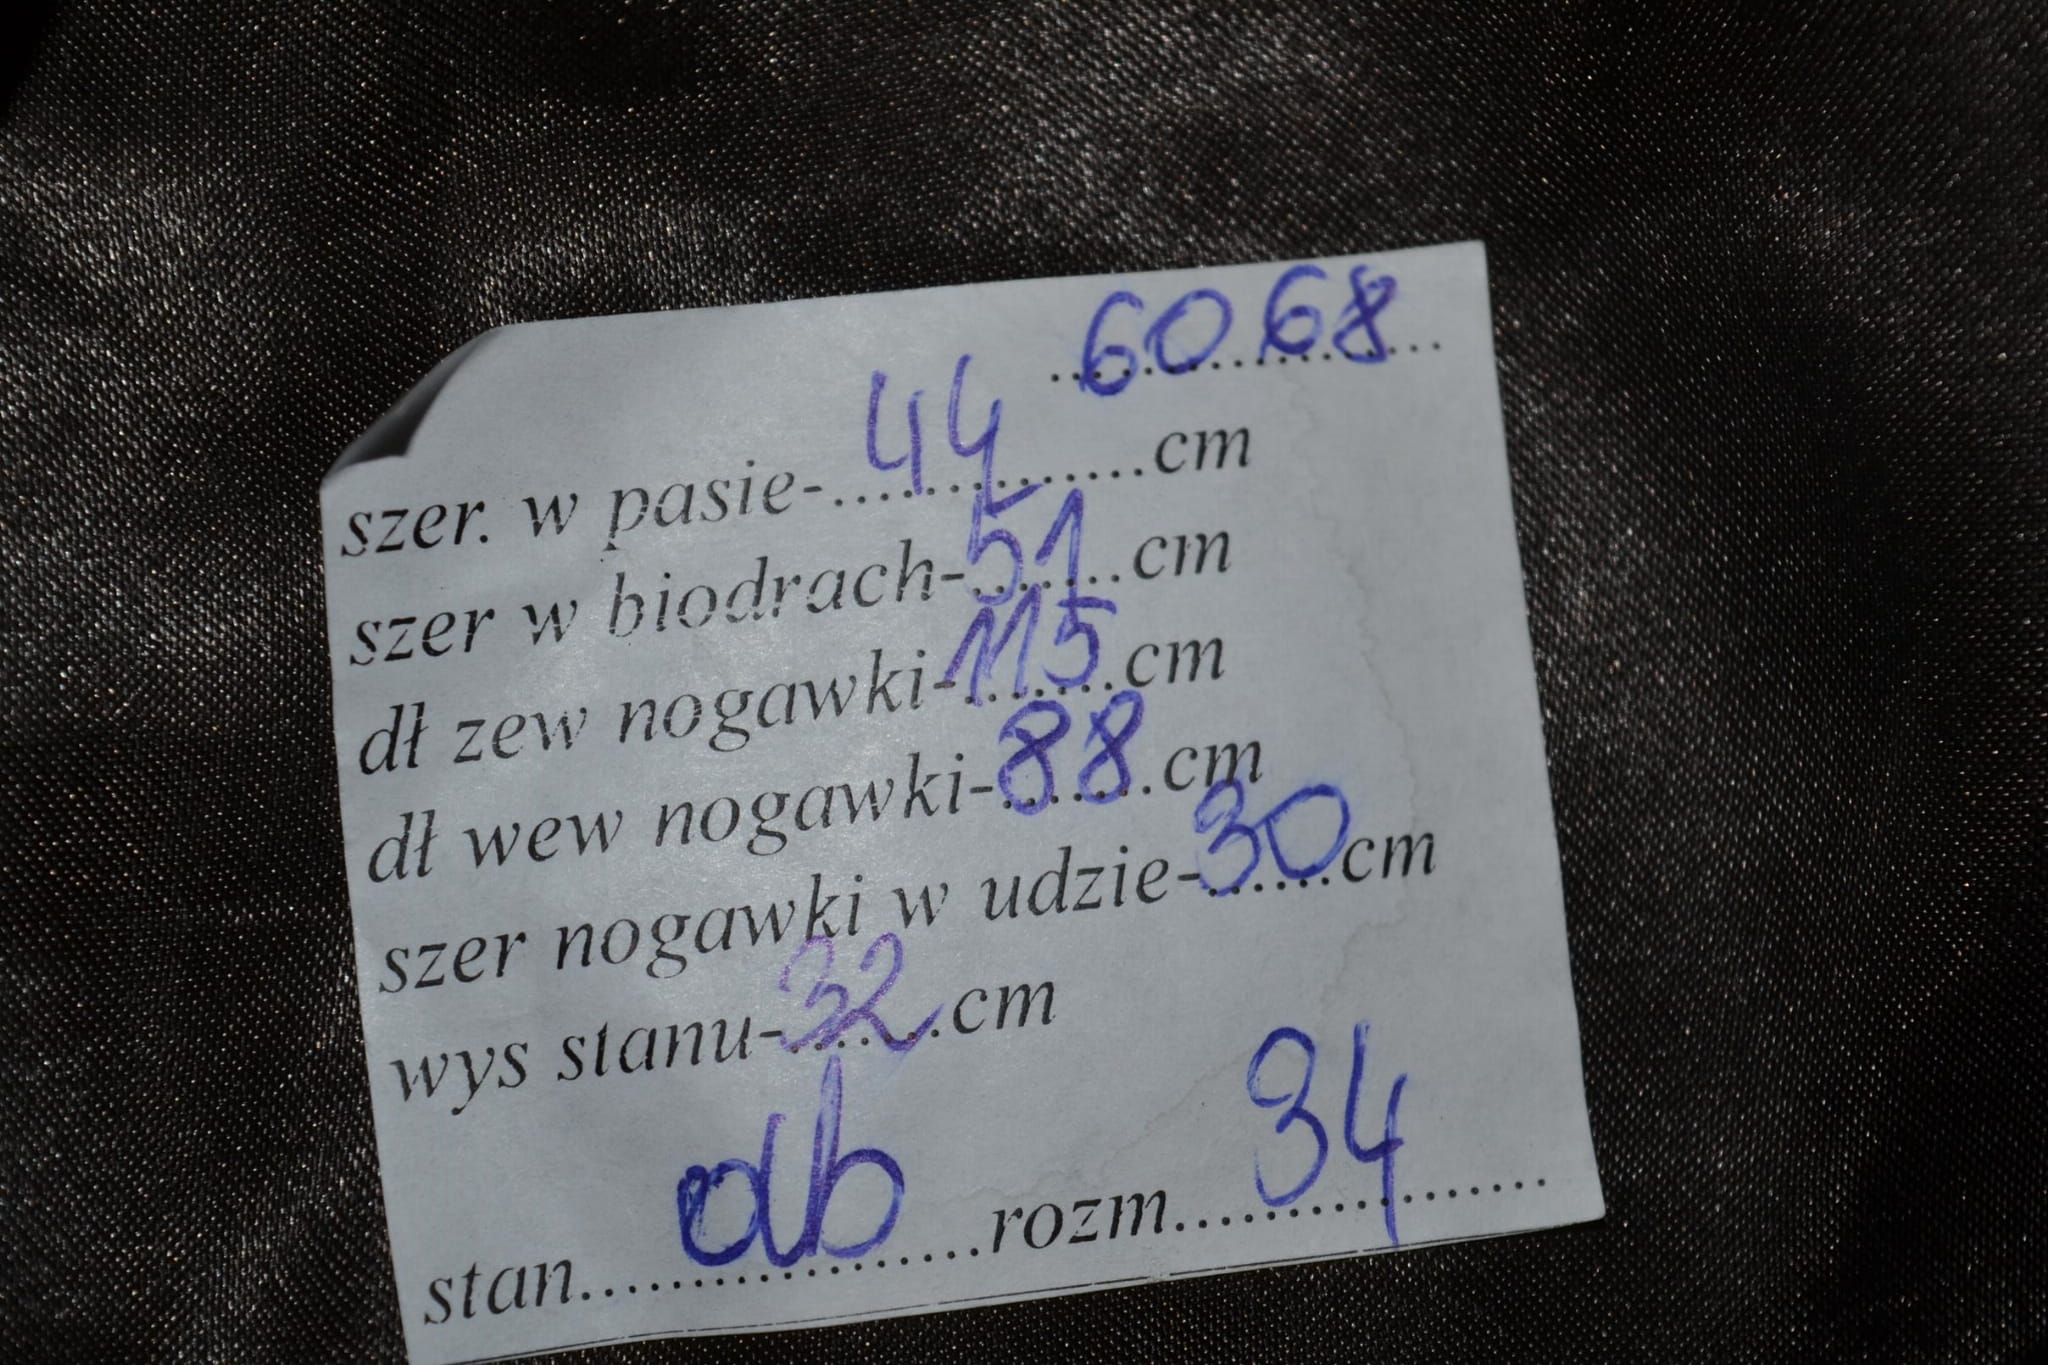 6068
szer. w pasie-44cm
szer w biodrach-51cm
dł zew nogawki-115cm
dł wew nogawki-88cm
szer nogawki w udzie-30cm
wys stanu-32cm
stan db rozm 34